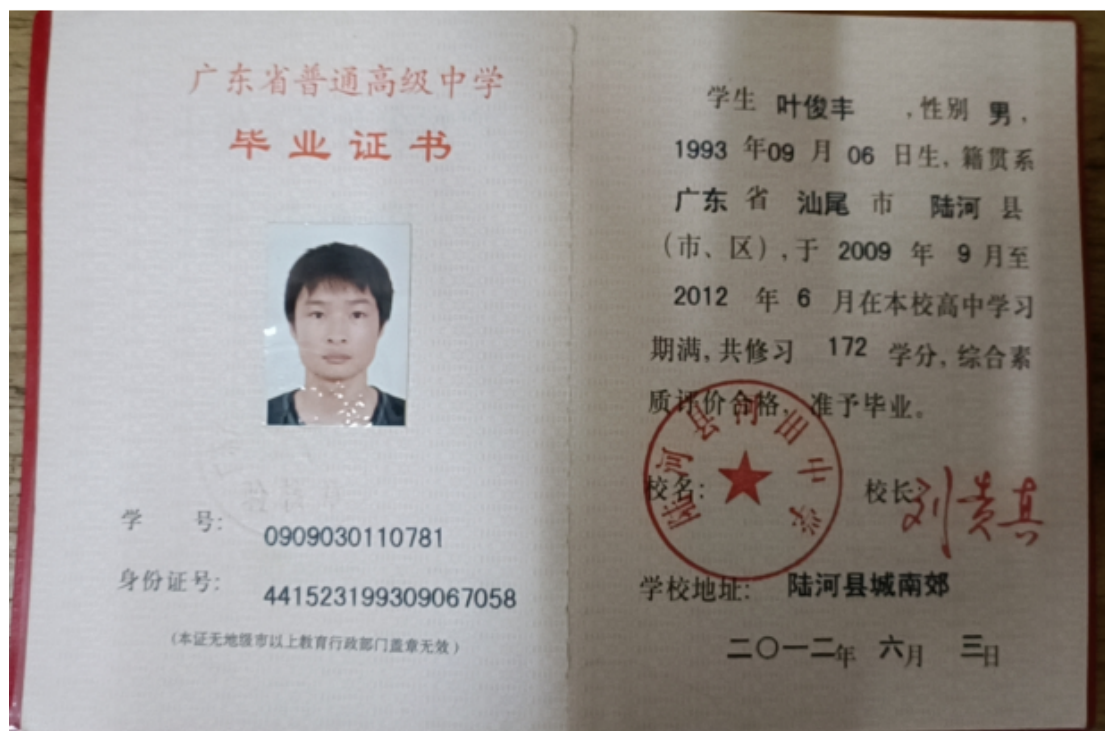 广东省普通高级中学
毕业证书
学 号: 0909030110781
身份证号: 441523199309067058
(本证无地级市以上教育行政部门盖章无效)
学生 叶俊丰 ,性别 男,
1993 年09 月 06 日生, 籍贯系
广东 省 汕尾 市 陆河 县
(市、区),于 2009 年 9 月至
2012 年 6 月在本校高中学习
期满,共修习 172 学分,综合素
质评价合格, 准予毕业。
陆河县河田中学
校名: 校长: 刘贵真
学校地址: 陆河县城南郊
二〇一二年 六月 三日